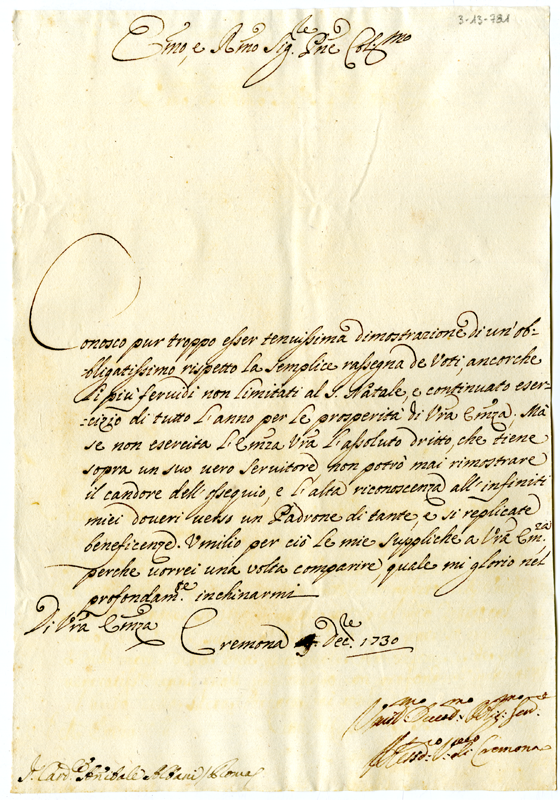 3-13-781
Emo, e Rmo Sig.re Pne Col.mo
Conosco pur troppo esser tenuissima dimostrazione di un'ob-
bligatissimo rispetto la semplice rassegna de Voti, ancorche
li più fervidi non limitati al S. Natale, e continuato eser-
cizio di tutto l'anno per le prosperità di Vra Emza; Mà
se non esercita l'Emza Vra l'assoluto dritto, che tiene
sopra un suo vero servitore non potrò mai rimostrare
il candore dell'ossequio, e l'alta riconoscenza all'infiniti
miei doveri verso un Padrone di tante, e si replicate
beneficenze. Umilio per ciò le mie suppliche a Vra Emza
perche vorrei una volta comparire, quale mi glorio nel
profondam.te inchinarmi
Di Vra Emza
Cremona Dec.re 1730
Aless.o Vesc.o di Cremona
S. Card. Annibale Albani / Roma